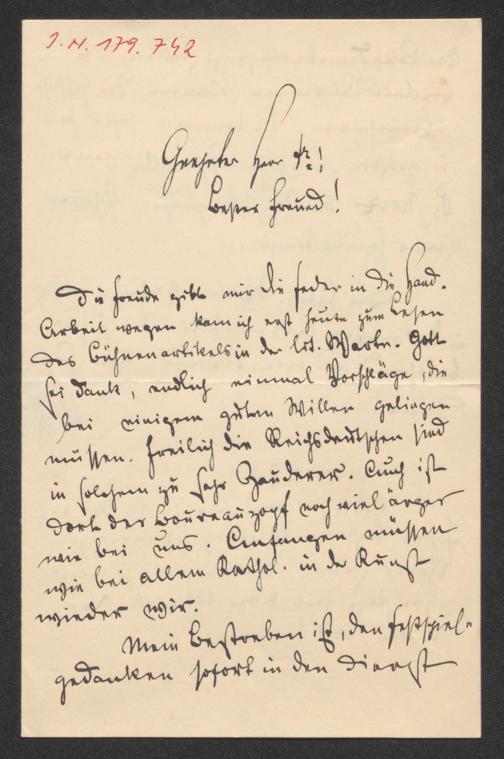 J. N. 179.742
Geehrter Herr Dr.!
Bester Freund!
Die Freude gibt mir die Feder in die Hand.
Arbeit wegen kam ich erst heute zum Lesen
des Bühnenartikels in der lit. Warte. Gott
sei Dank, endlich einmal Vorschläge, die
bei einigem guten Willen gelingen
müssen. Freilich die Reichsdeutschen sind
in solchem zu sehr Zauderer. Auch ist
dort der Boureauzopf noch viel ärger
wie bei uns. Anfangen müssen
wie bei allem Kathol. in der Kunst
wieder wir.
Mein Bestreben ist, den Festspiel-
gedanken sofort in den Dienst